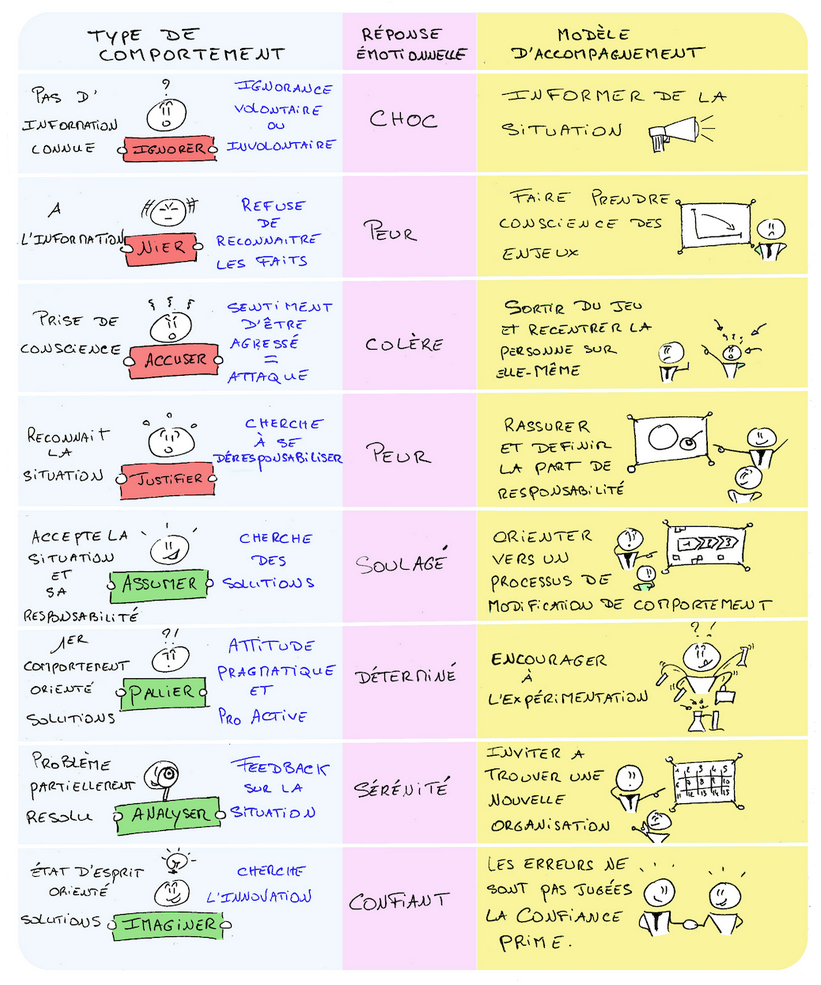 TYPE DE
COMPORTEMENT
RÉPONSE
ÉMOTIONNELLE
MODÈLE
D'ACCOMPAGNEMENT
PAS D'
INFORMATION
CONNUE
?
IGNORER
IGNORANCE
VOLONTAIRE
OU
INVOLONTAIRE
CHOC
INFORMER DE LA
SITUATION
A
L'INFORMATION
NIER
REFUSE
DE
RECONNAITRE
LES FAITS
PEUR
FAIRE PRENDRE
CONSCIENCE DES
ENJEUX
PRISE DE
CONSCIENCE
ACCUSER
SENTIMENT
D'ÊTRE
AGRESSÉ
=
ATTAQUE
COLÈRE
SORTIR DU JEU
ET RECENTRER LA
PERSONNE SUR
ELLE-MÊME
RECONNAIT
LA
SITUATION
JUSTIFIER
CHERCHE
À SE
DÉRESPONSABILISER
PEUR
RASSURER
ET DEFINIR
LA PART DE
RESPONSABILITÉ
ACCEPTE LA
SITUATION
ET
SA
RESPONSABILITÉ
ASSUMER
CHERCHE
DES
SOLUTIONS
SOULAGÉ
ORIENTER
VERS UN
PROCESSUS DE
MODIFICATION DE COMPORTEMENT
1 2 3
1ER
COMPORTEMENT
ORIENTÉ
SOLUTIONS
?!
PALLIER
ATTITUDE
PRAGMATIQUE
ET
PRO ACTIVE
DÉTERMINÉ
ENCOURAGER
À
L'EXPÉRIMENTATION
? !
PROBLÈME
PARTIELLEMENT
RESOLU
ANALYSER
FEEDBACK
SUR LA
SITUATION
SÉRÉNITÉ
INVITER A
TROUVER UNE
NOUVELLE
ORGANISATION
1 2 3 4 5
6 7 8 9 10
11 12 13 14 15
ÉTAT D'ESPRIT
ORIENTÉ
SOLUTIONS
IMAGINER
CHERCHE
L'INNOVATION
CONFIANT
LES ERREURS NE
SONT PAS JUGÉES
LA CONFIANCE
PRIME.